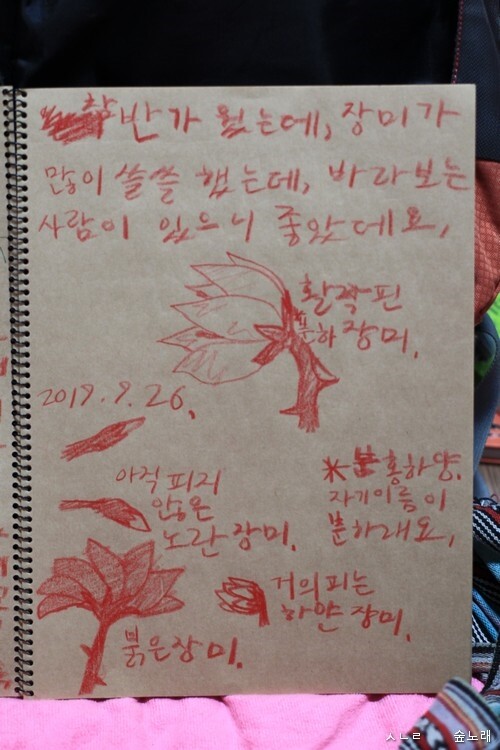 착 반가웠는데, 장미가
많이 쓸쓸했는데, 바라보는
사람이 있으니 좋았데요,
활짝핀
분하장미.
2019.9.26.
아직피지
않은
노란장미.
※ 분홍하양.
자기이름이
분하래요,
거의피는
하얀장미.
붉은장미.
ㅅㄴㄹ 숲노래